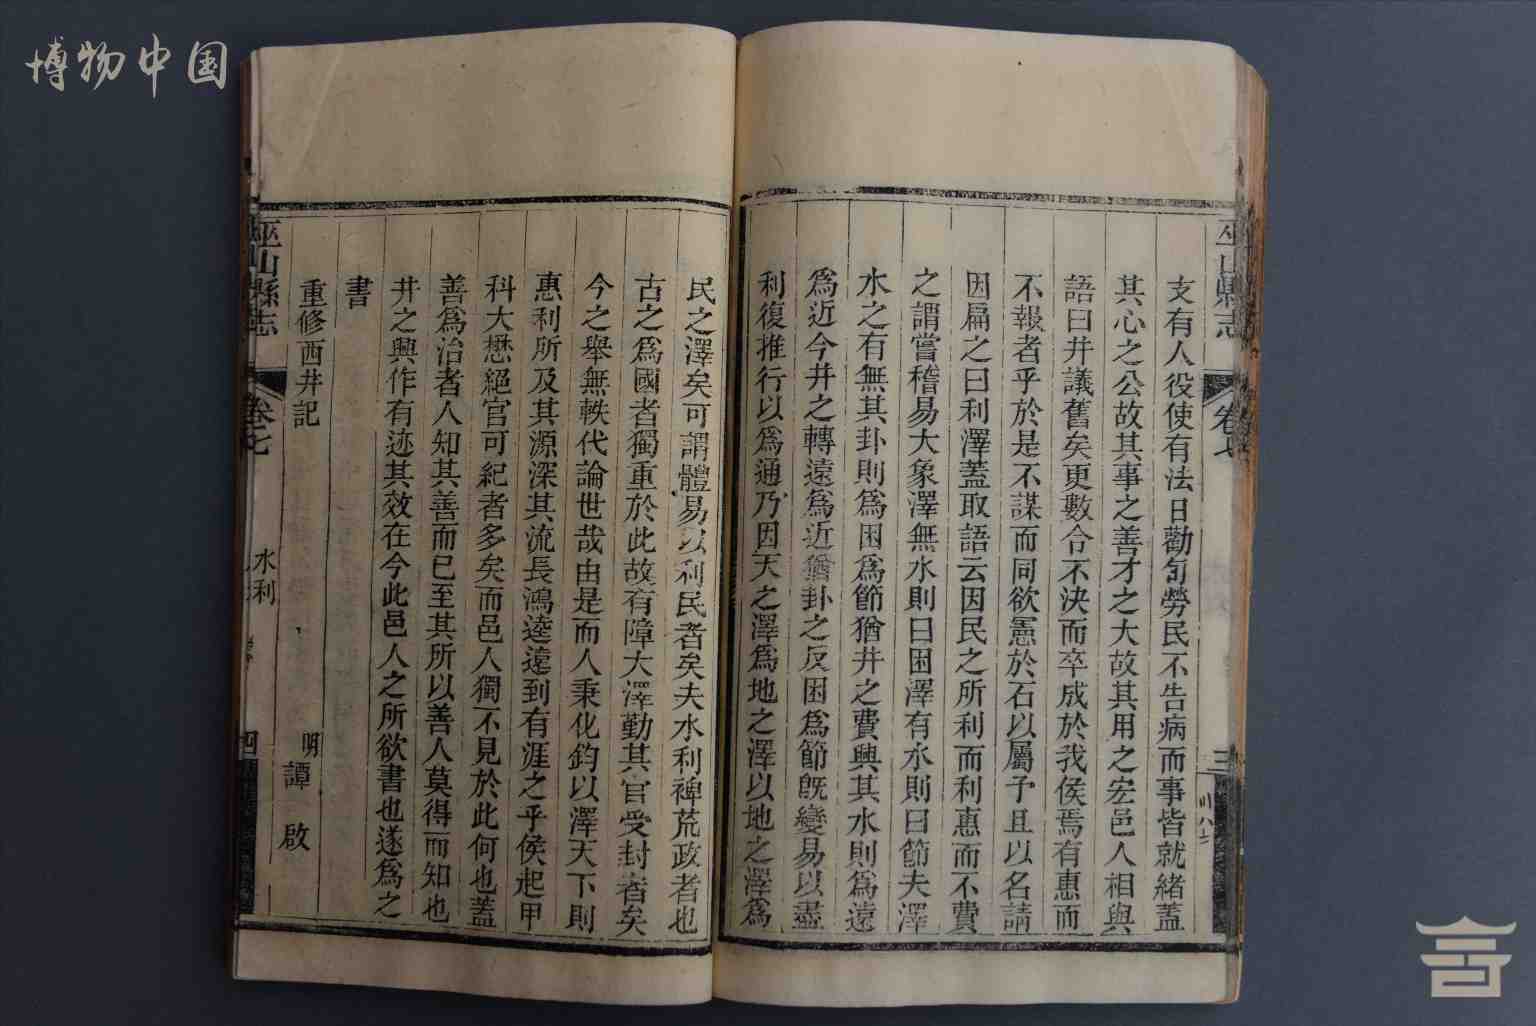 博物中国
巫山縣志
卷七
三
支有人役使有法日勸勼勞民不告病而事皆就緒蓋
其心之公故其事之善才之大故其用之宏邑人相與
語曰井議舊矣更數合不決而卒成於我侯焉有惠而
不報者乎於是不謀而同欲憲於石以屬予且以名請
因扁之曰利澤蓋取語云因民之所利而利惠而不費
之謂嘗稽易大象澤無水則曰困澤有水則曰節夫澤
水之有無其卦則為困為節猶井之費興其水則為遠
為近今井之轉遠為近猶卦之反困為節旣變易以盡
利復推行以為通乃因天之澤為地之澤以地之澤為
民之澤矣可謂體易以利民者矣夫水利裨荒政者也
古之為國者獨重於此故有障大澤勤其官受封者矣
今之舉無軼代論世哉由是而人秉化鈞以澤天下則
惠利所及其源深其流長鴻逵遠到有涯之乎侯起甲
科大懋絕官可紀者多矣而邑人獨不見於此何也蓋
善為治者人知其善而已至其所以善人莫得而知也
井之興作有迹其效在今此邑人之所欲書也遂為之
書
重修西井記
明譚啟
巫山縣志
卷七
水利
四